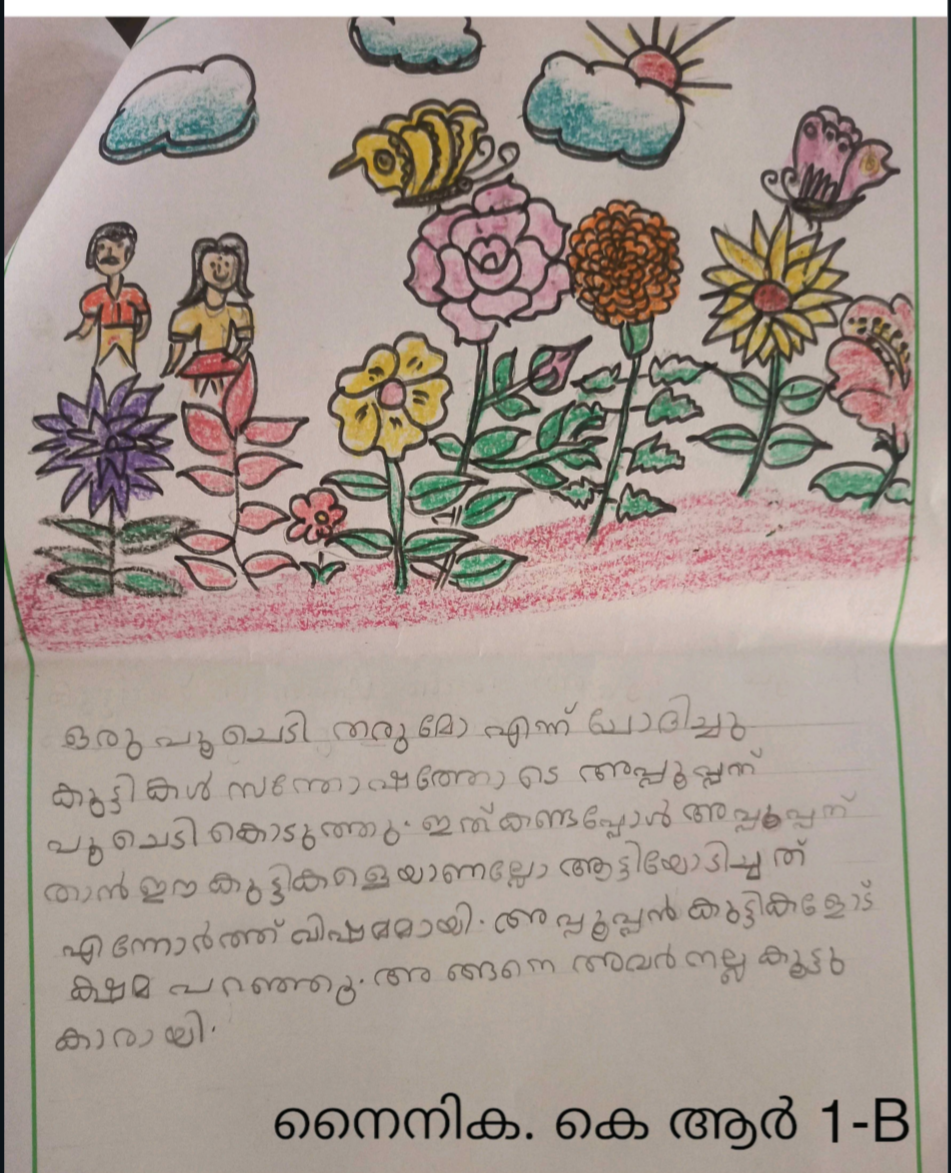 ഒരു പൂചെടി തരുമോ എന്ന് ചോദിച്ചു
കുട്ടികൾ സന്തോഷത്തോടെ അപ്പൂപ്പന്
പൂചെടി കൊടുത്തു. ഇത് കണ്ടപ്പോൾ അപ്പൂപ്പന്
താൻ ഈ കുട്ടികളെയാണല്ലോ ആട്ടിയോടിച്ചത്
എന്നോർത്ത് വിഷമമായി. അപ്പൂപ്പൻ കുട്ടികളോട്
ക്ഷമ പറഞ്ഞു. അങ്ങനെ അവർ നല്ല കൂട്ടു
കാരായി.
നൈനിക. കെ ആർ 1-B